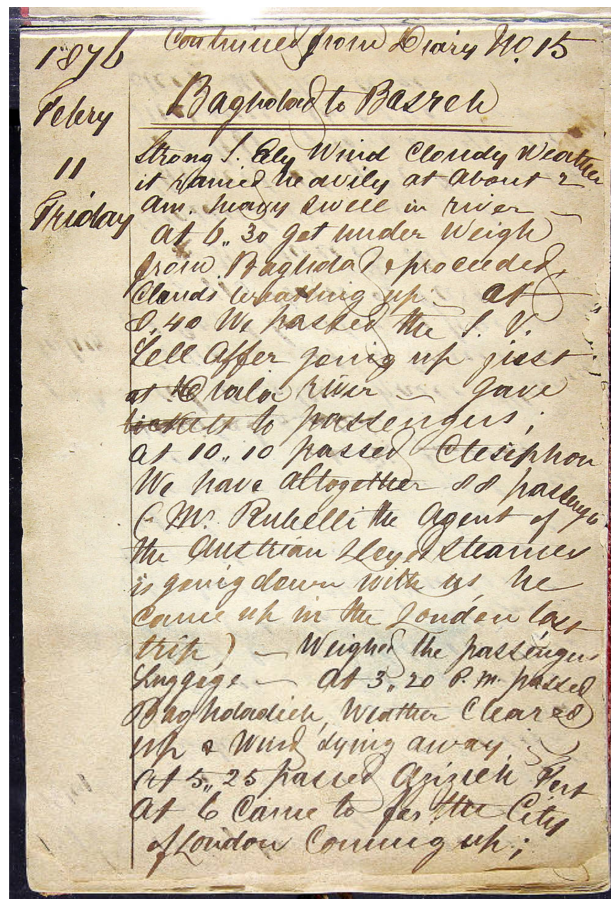 1876
Continued from Diary No. 15
Febry
Baghdad to Basreh
11
Friday
Strong S. Ely Wind Cloudy Weather
it rained heavily at about 2
am. heavy swell in river –
at 6,,30 got under weigh
from Baghdad & proceeded,
Clouds breaking up – at
8,,40 We passed the S. S.
going up just
at river – gave
tickets to passengers;
at 10,,10 passed Ctesiphon
We have altogether 88 passengs.
(Mr. Rubelli the Agent of
the Austrian Lloyd Steamer
is going down with us he
came up in the London last
trip) – Weighed the passengers
Luggage – at 3,,20 P.m. passed
Baghdadieh, Weather Cleared
up & Wind dying away,
at 5,,25 passed Azizieh Fort
at 6 Came to for the City
of London Coming up;